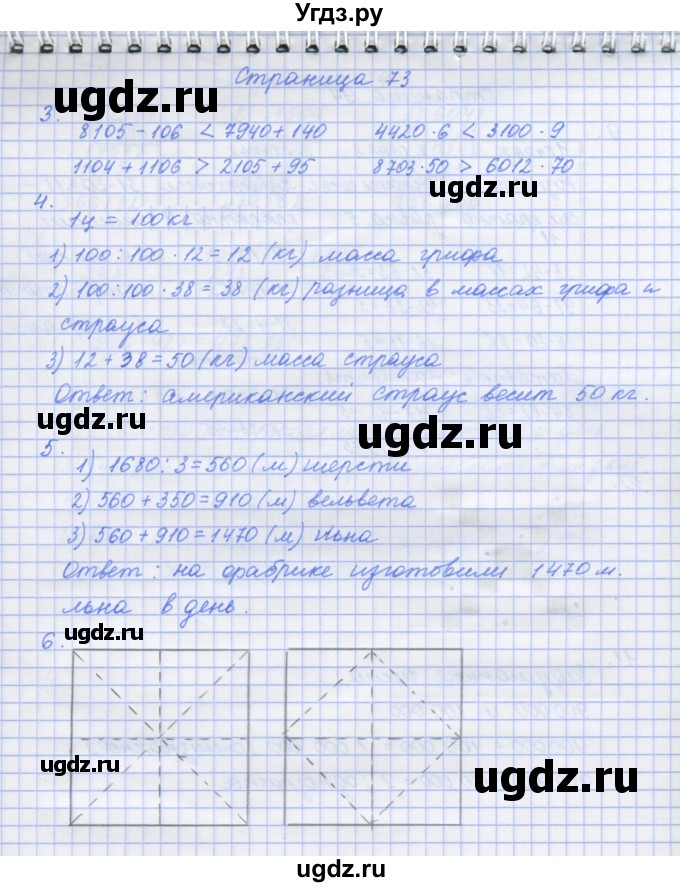 Угдз.ру
Страница 73
3.
8105 - 106 < 7940 + 140 4420 · 6 < 3100 · 9
1104 + 1106 > 2105 + 95 8703 · 50 > 6012 · 70
4.
1ц = 100 кг
1) 100 : 100 · 12 = 12 (кг) масса грифа
2) 100 : 100 · 38 = 38 (кг) разница в массах грифа и
страуса
3) 12 + 38 = 50 (кг) масса страуса
Ответ: американский страус весит 50 кг.
5.
1) 1680 : 3 = 560 (м) шерсти
2) 560 + 350 = 910 (м) вельвета
3) 560 + 910 = 1470 (м) льна
Ответ: на фабрике изготовили 1470 м.
льна в день.
6.
ugdz.ru
ugdz.ru
ugdz.ru
ugdz.ru
ugdz.ru
ugdz.ru
ugdz.ru
ugdz.ru
ugdz.ru